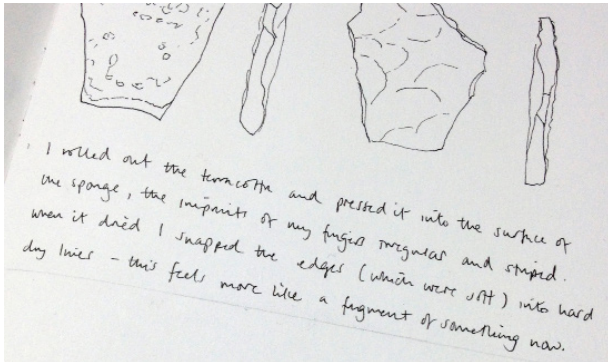 I rolled out the terracotta and pressed it into the surface of
the sponge, the imprints of my fingers irregular and striped.
when it dried I snapped the edges (which were soft) into hard
dry lines - this feels more like a fragment of something now.